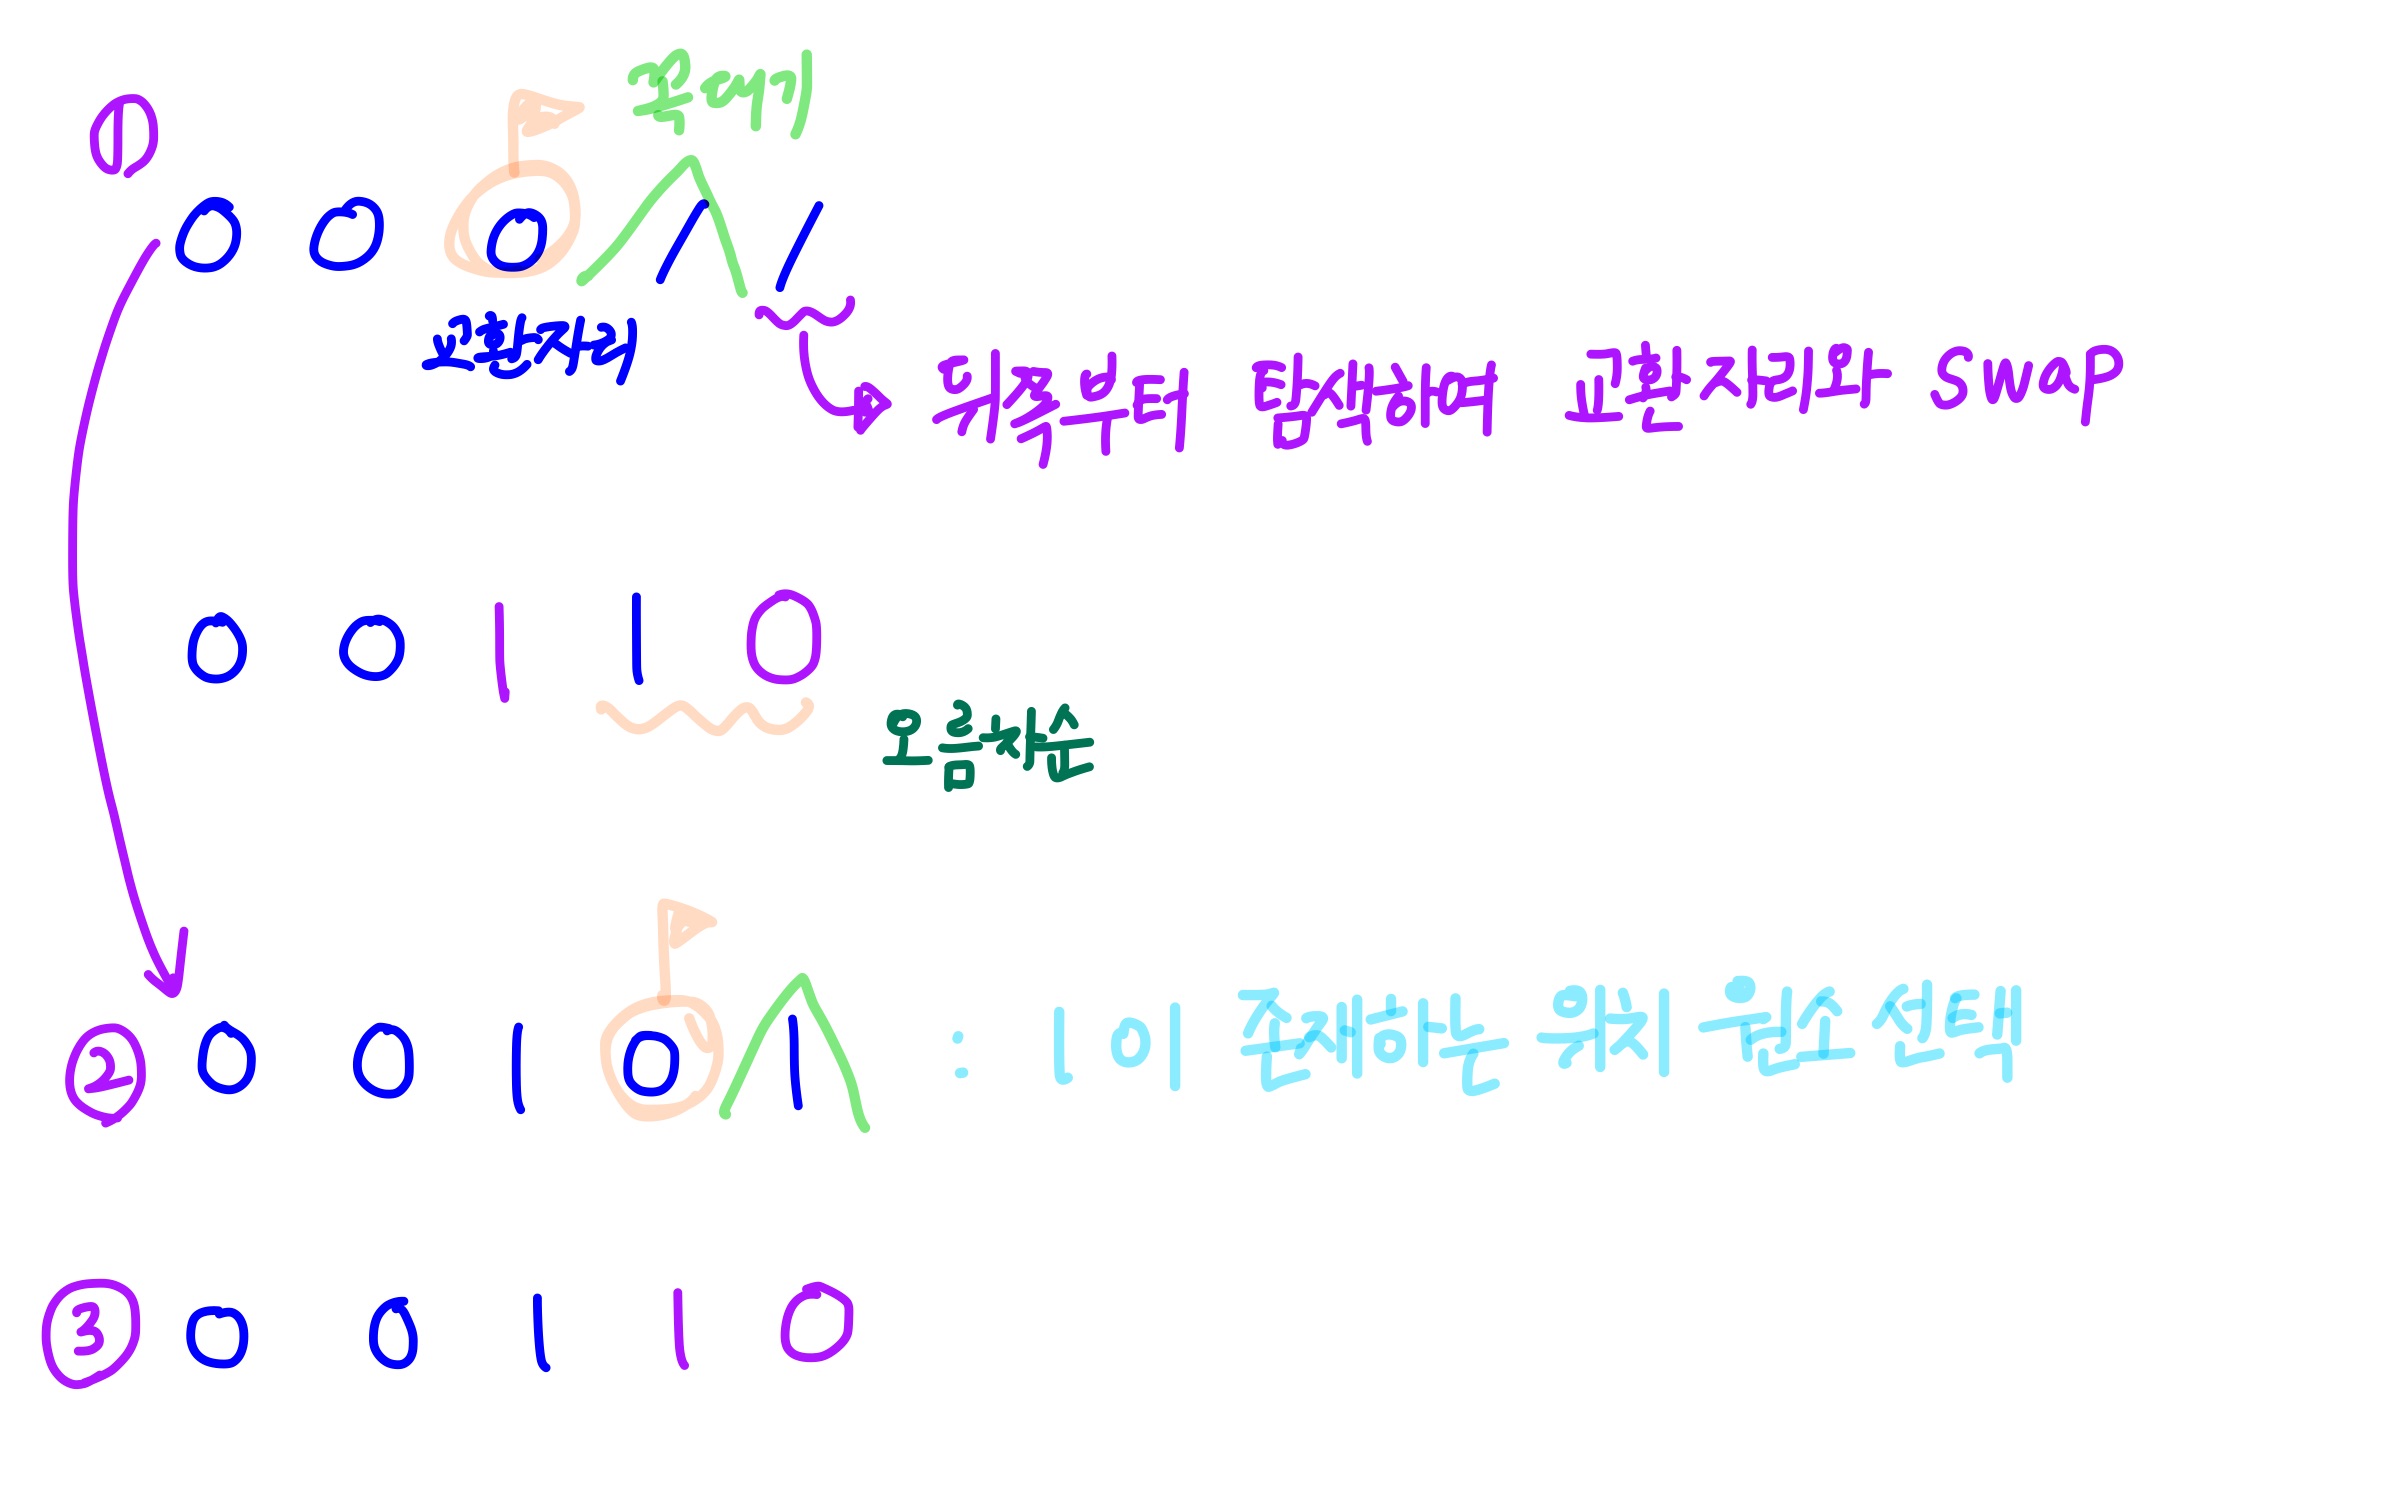 ①
꼭대기
0 0 0 1 1
교환자리
뒤쪽부터 탐색하여 교환 자리와 swap
0 0 1 1 0
오름차순
② 0 0 1 0 1 : 1이 존재하는 위치 원소 선택
③ 0 0 1 1 0